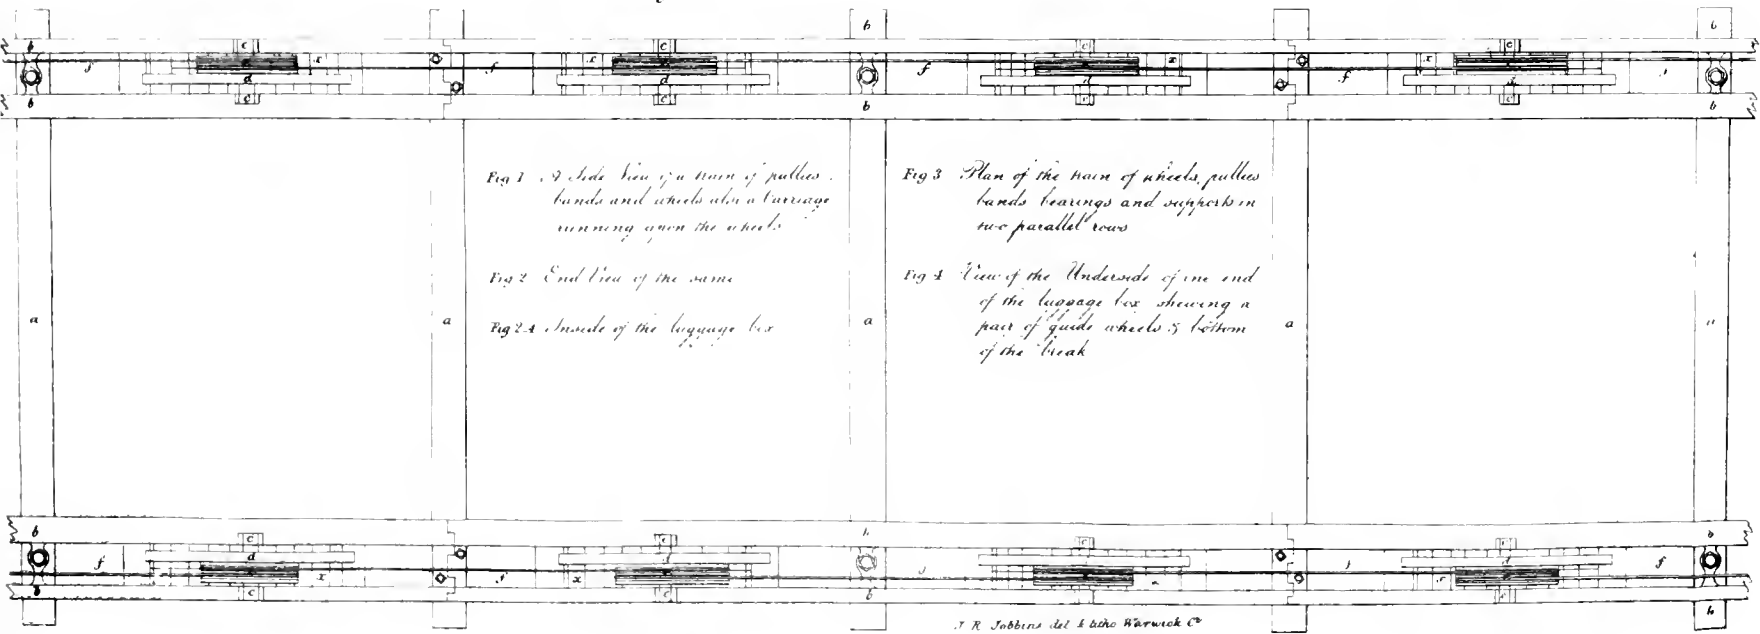 Fig 1 A Side View of a train of pullies
bands and wheels also a Carriage
running upon the wheels
Fig 2 End View of the same
Fig 2.4 Inside of the luggage box
Fig 3 Plan of the train of wheels, pullies
bands bearings and supports in
two parallel rows
Fig 4 View of the Underside of one end
of the luggage box shewing a
pair of guide wheels & bottom
of the break
b
b
b
b
b
b
f
f
f
f
c
c
c
c
x
x
x
x
d
d
d
a
a
a
a
b
b
b
f
f
f
c
c
c
d
x
x
b
b
b
J. R. Jobbins del & litho Warwick Ct